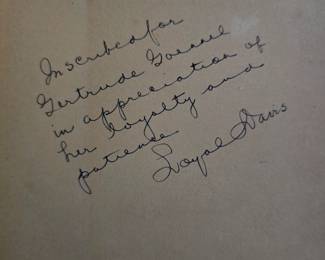 Inscribed for
Gertrude
in appreciation of
her loyalty and
patience
Loyal Davis